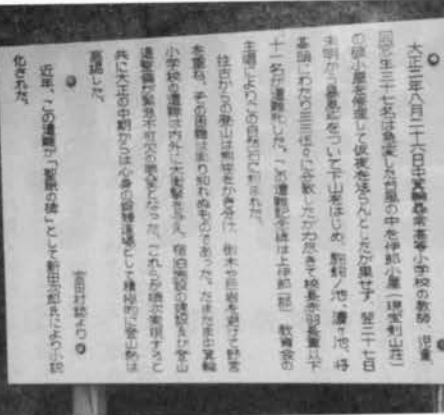 大正二年八月二十六日中箕輪尋常高等小学校の教師、児童、
同窓生三十七名は急変した台風の中を伊那小屋(現宝剣山荘)
の破小屋を修理して仮夜を活らんとしたが果せず、翌二十七日
未明から暴風雨をついて下山をはじめ、駒飼ノ池、濃ヶ池、将
棊頭にわたり三三伍々に分散したが力尽きて校長赤羽長重以下
十一名が遭難死した。この遭難記念碑は上伊那(郡)教育会の
主唱によりこの自然石に刻まれた。
往古からの登山は熊笹をかき分け、樹木や巨岩を避けて野営
を重ね、その困難は計り知れぬものであった。たまたま中箕輪
小学校の遭難は内外に大衝撃を与え、宿泊施設の建設及び登山
道整備が緊急不可欠の要望となった。これらが順次実現すると
共に大正の中期からは心身の鍛錬道場として積極的に登山熱は
高揚した。
宮田村誌より
近年、この遭難が「聖職の碑」として新田次郎氏により小説
化された。